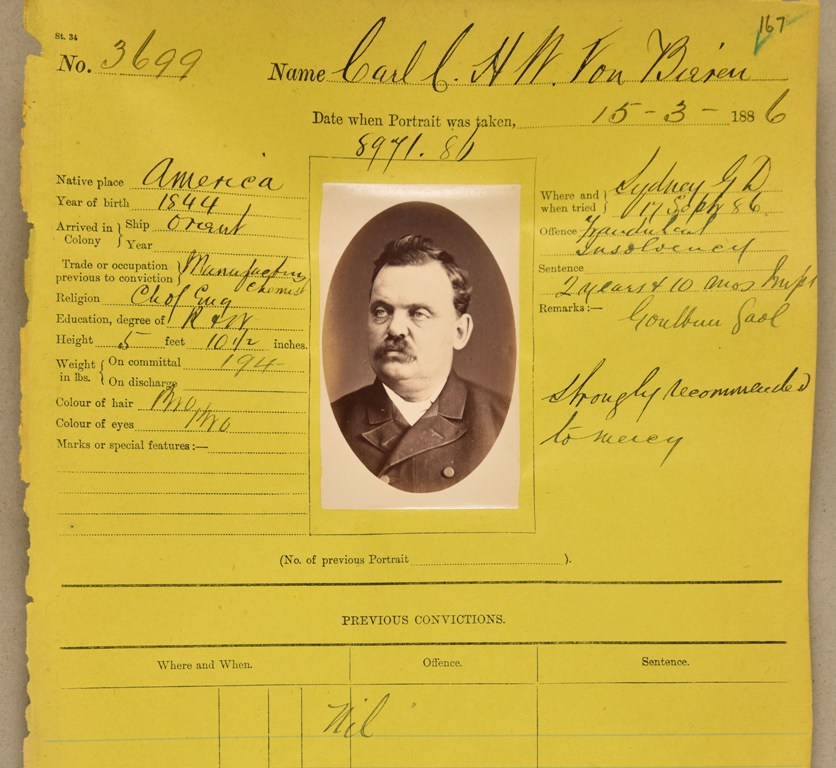 167
St. 34
No. 3699
Name Carl C. H. W. Von Bieren
Date when Portrait was taken, 15-3-1886
8971. 86
Native place America
Year of birth 1844
Arrived in Colony } Ship Orient
Year
Trade or occupation previous to conviction } Manufacturing Chemist
Religion Ch of Eng
Education, degree of R & W
Height 5 feet 10 1/2 inches.
Weight in lbs. { On committal 194
On discharge
Colour of hair Bro
Colour of eyes Bro
Marks or special features:—
Where and when tried } Sydney Q D
17 Septr 86
Offence Fraudulent
insolvency
Sentence
2 years & 10 mos Impt
Remarks:—
Goulburn Gaol
Strongly recommended
to mercy
(No. of previous Portrait ).
PREVIOUS CONVICTIONS.
Where and When. Offence. Sentence.
Nil